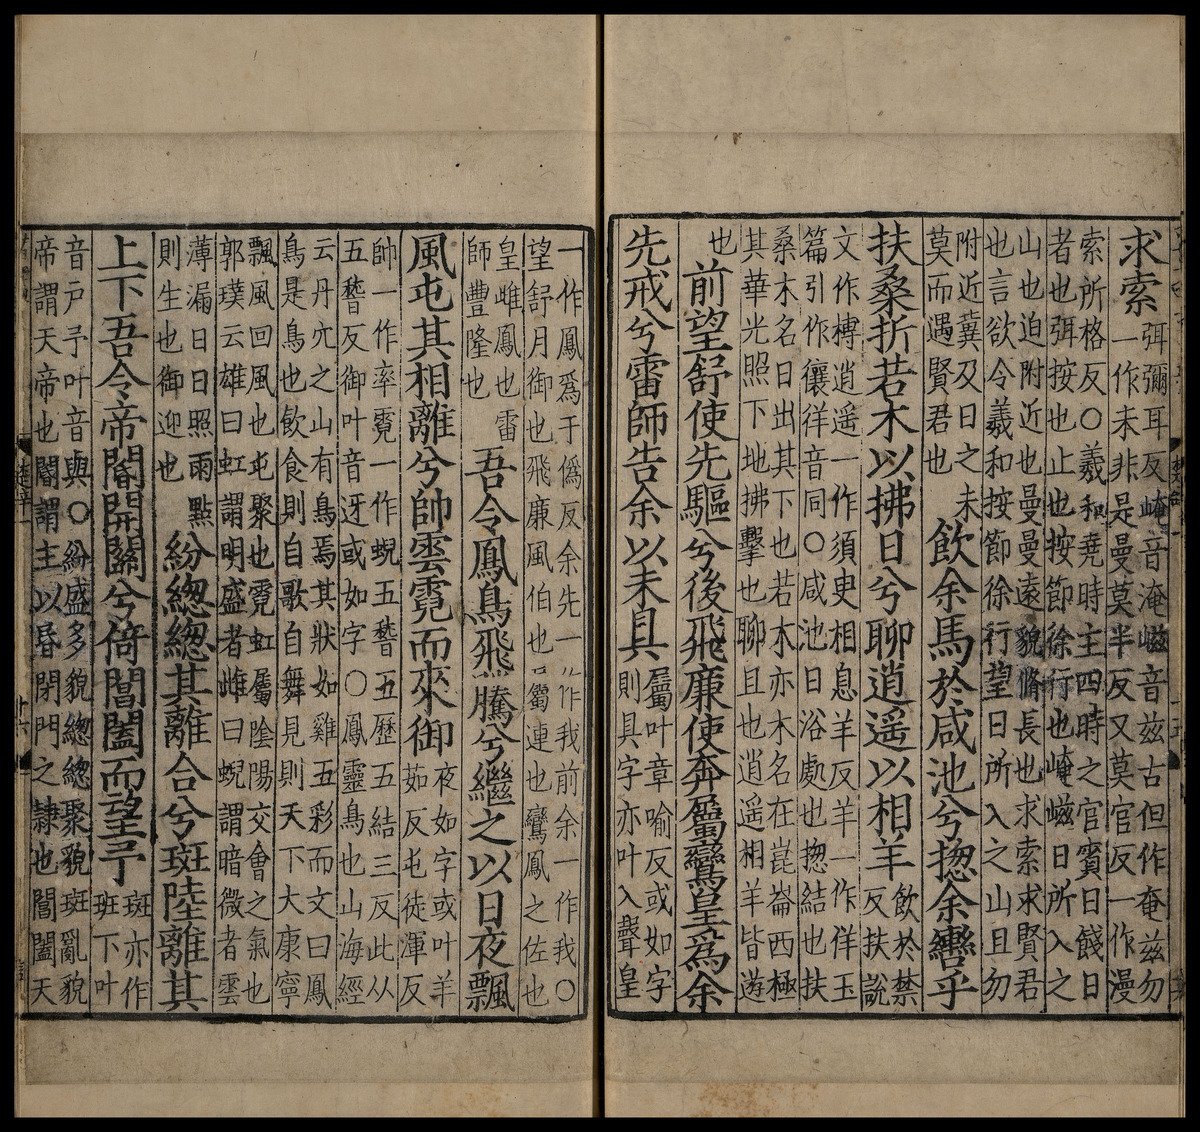 求索
弭彌耳反崦音淹嵫音玆古但作奄玆勿
一作未非是曼莫半反又莫官反一作漫
索所格反○羲和堯時主四時之官賓日餞日
者也弭按也止也按節徐行也崦嵫日所入之
山也迫附近也曼曼遠貌脩長也求索求賢君
也言欲令羲和按節徐行望日所入之山且勿
附近冀及日之未
莫而遇賢君也
飲余馬於咸池兮揔余轡乎
扶桑折若木以拂日兮聊逍遥以相羊
飲於禁
反扶說
文作榑逍遥一作須臾相息羊反羊一作佯玉
篇引作儴徉音同○咸池日浴處也揔結也扶
桑木名日出其下也若木亦木名在崑崙西極
其華光照下地拂擊也聊且也逍遥相羊皆遊
也
前望舒使先驅兮後飛廉使奔屬鸞皇爲余
先戒兮雷師告余以未具
屬叶章喻反或如字
則具字亦叶入聲皇
一作鳳爲于僞反余先一作我前余一作我○
望舒月御也飛廉風伯也屬連也鸞鳳之佐也
皇雌鳳也雷
師豐隆也
吾令鳳鳥飛騰兮繼之以日夜飄
風屯其相離兮帥雲霓而來御
夜如字或叶羊
茹反屯徒渾反
帥一作率霓一作蜺五嵆五歷五結三反此从
五嵆反御叶音迓或如字○鳳靈鳥也山海經
云丹穴之山有鳥焉其狀如雞五彩而文曰鳳
鳥是鳥也飲食則自歌自舞見則天下大康寧
飄風回風也屯聚也霓虹屬陰陽交會之氣也
郭璞云雄曰虹謂明盛者雌曰蜺謂暗微者雲
薄漏日日照雨點
則生也御迎也
紛緫緫其離合兮斑陸離其
上下吾令帝閽開關兮倚閶闔而望予
斑亦作
班下叶
音戸予叶音與○紛盛多貌緫緫聚貌斑亂貌
帝謂天帝也閽謂主以昏閉門之隷也閶闔天